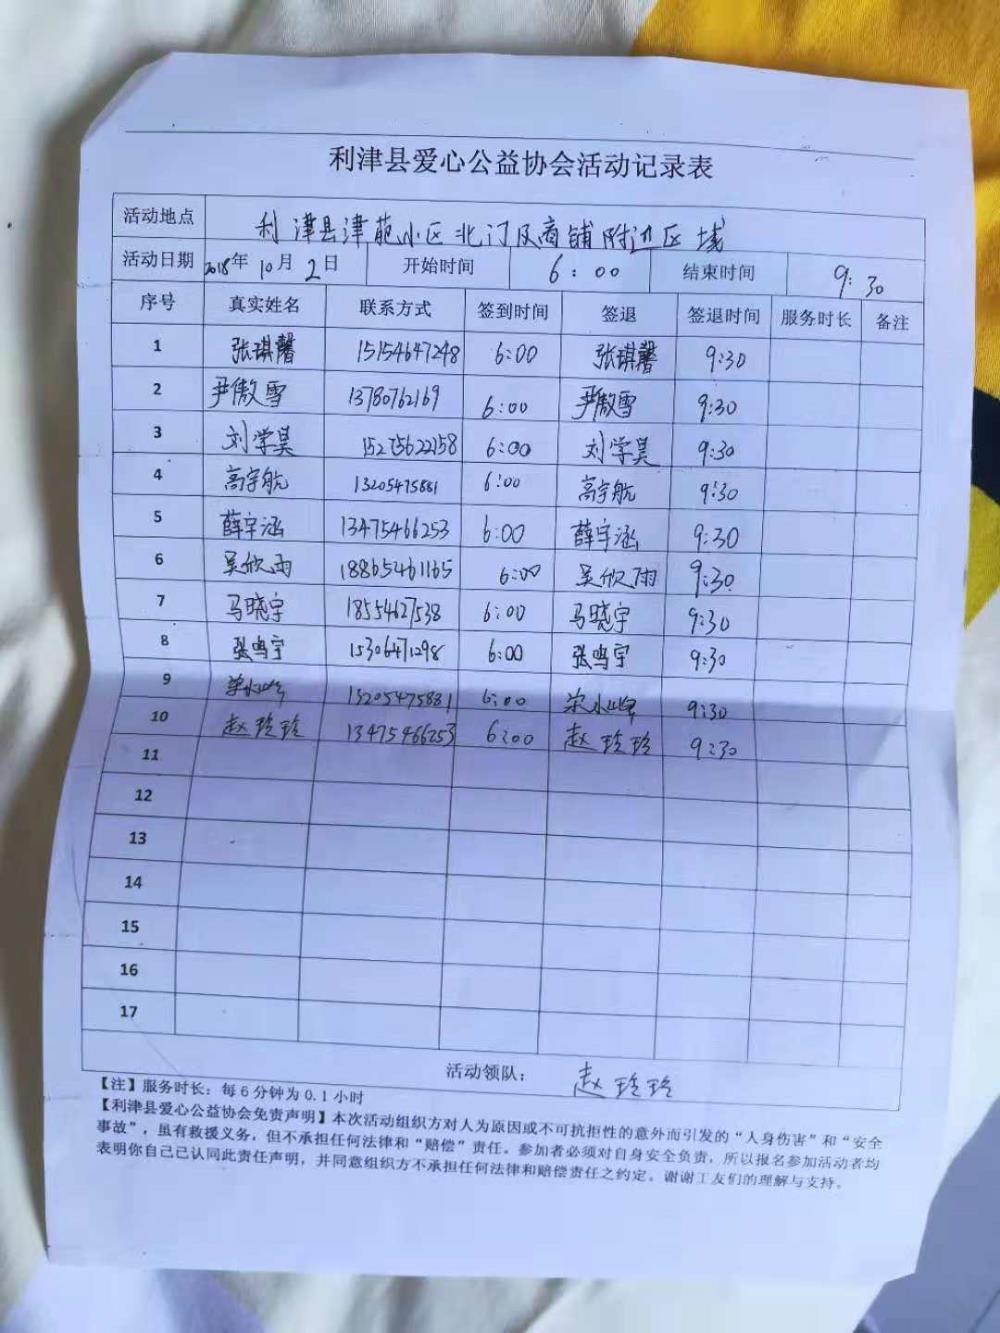 利津县爱心公益协会活动记录表
活动地点 利津县津苑小区北门及商铺附近区域
活动日期 2018年10月2日 开始时间 6:00 结束时间 9:30
序号 真实姓名 联系方式 签到时间 签退 签退时间 服务时长 备注
1 张琪馨 15154647248 6:00 张琪馨 9:30
2 尹傲雪 13780762169 6:00 尹傲雪 9:30
3 刘学昊 15275622158 6:00 刘学昊 9:30
4 高宇航 13205475881 6:00 高宇航 9:30
5 薛宇涵 13475466253 6:00 薛宇涵 9:30
6 吴欣雨 18865461165 6:00 吴欣雨 9:30
7 马晓宇 18554627538 6:00 马晓宇 9:30
8 张鸣宇 15306471298 6:00 张鸣宇 9:30
9 13205475881 6:00 9:30
10 赵玲玲 13475466253 6:00 赵玲玲 9:30
11
12
13
14
15
16
17
活动领队： 赵玲玲
【注】服务时长：每6分钟为0.1小时
【利津县爱心公益协会免责声明】本次活动组织方对人为原因或不可抗拒性的意外而引发的“人身伤害”和“安全
事故”，虽有救援义务，但不承担任何法律和“赔偿”责任。参加者必须对自身安全负责，所以报名参加活动者均
表明你自己已认同此责任声明，并同意组织方不承担任何法律和赔偿责任之约定。谢谢工友们的理解与支持。